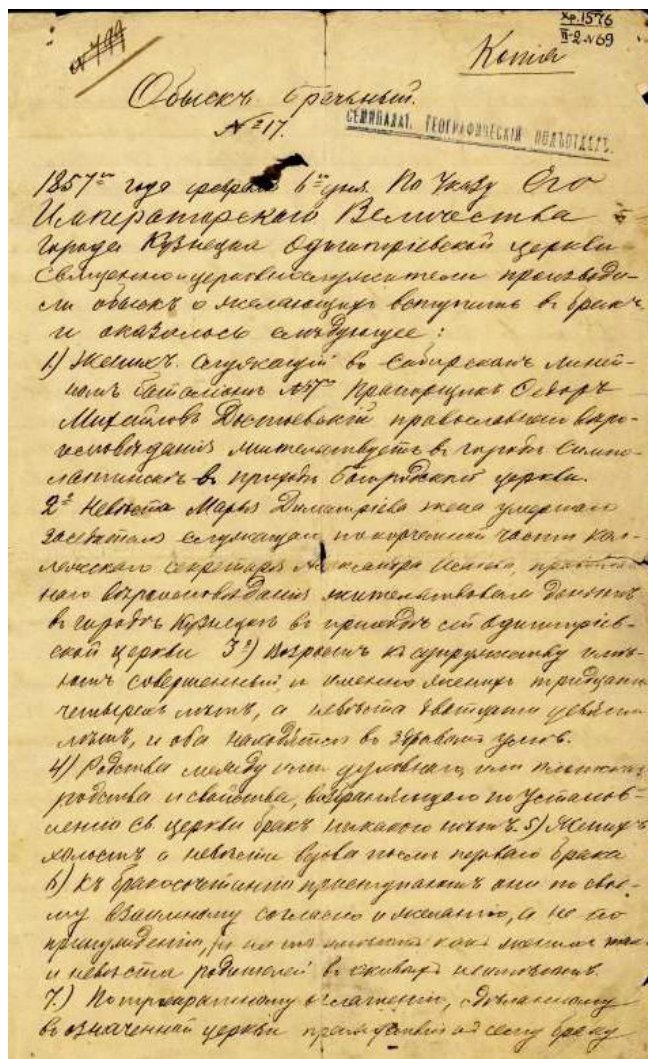 Хр. 1576
II-2 № 69
№ 744
Копія
Обыскъ брачный.
№ 17.
СЕМИПАЛАТ. ГЕОГРАФИЧЕСКІЙ ПОДЪОТДѢЛЪ.
1857го года февраля 6го дня. По Указу Его
Императорскаго Величества
города Кузнецка Одигитріевской церкви
священно и церковнослужители производи-
ли обыскъ о желающихъ вступить въ бракъ
и оказалось слѣдующее:
1.) Женихъ. Служащій въ Сибирскомъ Линей-
номъ баталіонѣ №7го Прапорщикъ Ѳедоръ
Михайловъ Достоевскій православнаго вѣро-
исповѣданія жительствуетъ въ городѣ Семипо-
латинскѣ въ приходѣ богородской церкви.
2е Невѣста Марья Димитріева жена умершаго
Засѣдателя служащаго по корчемной части Кол-
лежскаго Секретаря Александра Исаева, православ-
наго вѣроисповѣданія жительствовала донынѣ
въ городѣ Кузнецкѣ въ приходѣ сей Одигитріев-
ской церкви 3е) Возрастъ къ супружеству имѣ-
ютъ совершенный и именно женихъ тридцати
четырехъ лѣтъ, а невѣста двадцати девяти
лѣтъ, и оба находятся въ здравомъ умѣ.
4) Родства между ими духовнаго или плотскаго
родства и свойства, возбраняющаго по установ-
ленію св. церкви бракъ никакого нѣтъ. 5) Женихъ
холостъ а невѣста вдова послѣ перваго брака
6) Къ бракосочетанію приступаютъ они по свое-
му взаимному согласію и желанію, а не по
принужденію, и на то имѣютъ какъ женихъ так
и невѣста родителей въ живыхъ неимѣютъ.
7.) По троекратному оглашенію, сдѣланному
въ означенной церкви препятствія къ сему браку